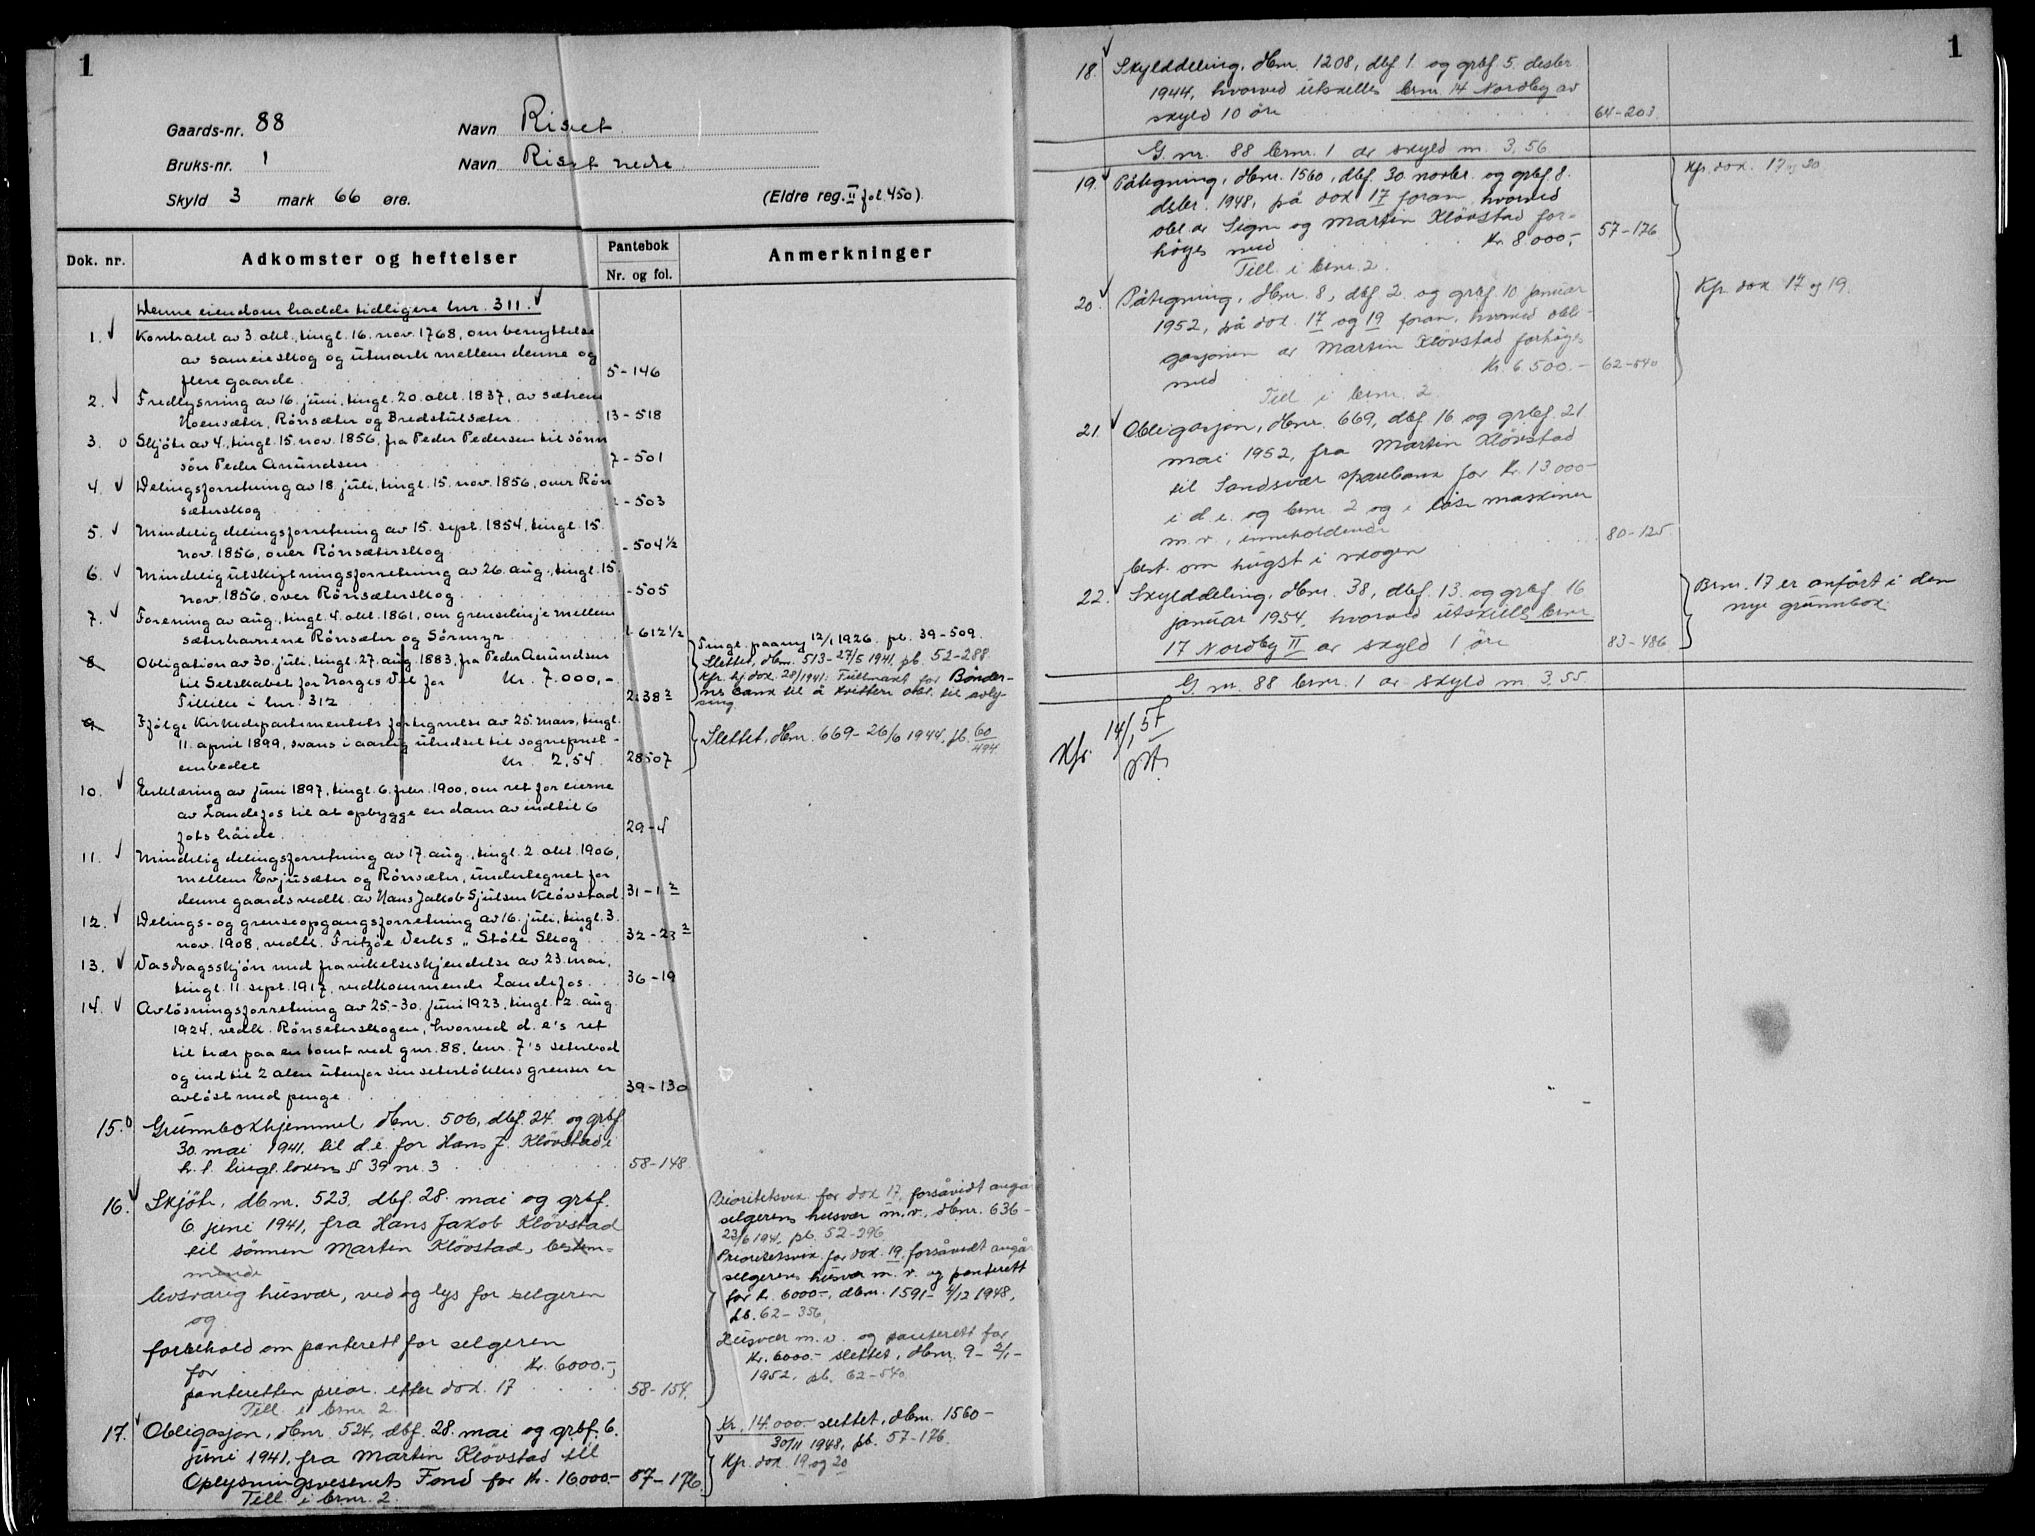 1
Gaards-nr. 88 Navn Riset
Bruks-nr. 1 Navn Riset nedre
Skyld 3 mark 66 øre. (Eldre reg. II fol. 450)
Dok. nr. Adkomster og heftelser Pantebok Nr. og fol. Anmerkninger
Denne eiendom hadde tidligere lnr. 311.
1. Kontrakt av 3. okt., tingl. 16. nov. 1768, om benyttelse
av sameieskog og utmark mellem denne og
flere gaarde. 5-146
2. Fredlysning av 16. juni, tingl. 20. okt. 1837, av sætrene
Moensæter, Rönsæter og Bredstulsæter. 13-518
3. Skjöte av 4., tingl. 15. nov. 1856, fra Peder Pedersen til sönne
sön Peder Amundsen 7-501
4. Delingsforretning av 18. juli, tingl. 15. nov. 1856, over Rön
sæterskog -503
5. Mindelig delingsforretning av 15. sept. 1854, tingl. 15.
nov. 1856, over Rönsæterskog -504½
6. Mindelig utskiftningsforretning av 26. aug., tingl. 15.
nov. 1856, over Rönsæterskog. -505
7. Forening av aug., tingl. 4. okt. 1861, om grenselinje mellem
sæterhavnene Rönsæter og Sörmyr. -612½
8 Obligation av 30. juli, tingl. 27. aug. 1883, fra Peder Amundsen
til Selskabet for Norges Vel for Kr. 7.000,-
Tillike i lnr. 312 238²
Tingl. paany 12/1 1926. pb. 39-509.
Slettet, dbnr. 513-27/5 1941. pb. 52-288.
Kfr. hj.dok. 28/1941: Fullmakt for Bönder-
nes bank til å kvittere obl. til avly-
sing.
9 Ifølge Kirkedepartementets fortegnelse av 25. mars, tingl.
11. april 1899, svares i aarlig utredsel til sogneprest-
embedet Kr. 2,54. 28507
Slettet, dbnr. 669-26/6 1944, pb. 60/494.
10. Erklæring av juni 1897, tingl. 6. febr. 1900, om ret for eierne
av Landefos til at opbygge en dam av indtil 6
fots höide. 29-5
11. Mindelig delingsforretning av 17. aug., tingl. 2. okt. 1906,
mellem Evjusæter og Rönsæter, undertegnet for
denne gaards vedk. av Hans Jakob Gjulsen Klövstad. 31-1²
12. Delings- og grenseopgangsforretning av 16. juli, tingl. 3.
nov. 1908, vedk. Fritzöe Verks "Stöle Skog". 32-23²
13. Vasdragsskjön med fravikelseskjendelse av 23. mai,
tingl. 11. sept. 1917, vedkommende Landefos. 36-19
14. Avlösningsforretning av 25-30. juni 1923, tingl. 12. aug.
1924, vedk. Rönseterskogen, hvorved d. e's ret
til trær paa en tomt ved gnr. 88, bnr. 7's seterbod
og indtil 2 alen utenfor sin seterlökkes grenser er
avlöst med penge 39-130
15. Grunnbokhjemmel, dbnr. 506, dbf. 24. og grbf.
30. mai 1941, til d.e. for Hans J. Klövstad i
h.t. tingl. lovens § 39 nr. 3 58-148
16. Skjöte, dbnr. 523, dbf. 28. mai og grbf.
6 juni 1941, fra Hans Jakob Klövstad
til sönnen Martin Klövstad, bestem-
mende
livsvarig husvær, ved og lys for selgeren
og
forbehold om panterett for selgeren
for Kr. 6000.-,
panteretten prior. etter dok. 17 58-154.
Till. i bnr. 2
Prioritetsvik. for dok. 17, forsåvidt angår
selgerens husvær m.v., dbnr. 636-
23/6 1941, pb. 52-296.
Prioritetsvik. for dok. 19, forsåvidt angår
selgerens husvær m.v. og panterett
for kr. 6000-, dbnr. 1591-4/12 1948,
pb. 62-356.
Husvær m.v. og panterett for
Kr. 6000.- slettet, dbnr. 9-2/1-
1952, pb. 62-540.
17. Obligasjon, dbnr. 524, dbf. 28. mai og grbf. 6.
juni 1941, fra Martin Klövstad til
Oplysningsvesenets Fond for Kr. 16000.- 57-176.
Till. i bnr. 2.
Kr. 14.000.- slettet, dbnr. 1560-
30/11 1948, pb. 57-176.
Kfr. dok. 19 og 20
1
18. Skylddeling, dbnr. 1208, dbf. 1. og grbf. 5. desbr
1944, hvorved utskilles bnr. 14 Nordby av
skyld 10 öre 64-203
G. nr. 88 bnr. 1 av skyld m. 3,56
19. Påtegning, dbnr. 1560, dbf. 30. novbr. og grbf. 8.
desbr. 1948, på dok 17 foran, hvorved
obl. av Signe og Martin Klövstad for-
höyes med Kr. 8.000,- 57-176
Till. i bnr. 2.
Kfr. dok. 17 og 20
20. Påtegning, dbnr. 8, dbf. 2. og grbf. 10 januar
1952, på dok. 17 og 19 foran, hvorved obli-
gasjonen av Martin Klövstad forhöyes
med Kr. 6.500.- 62-540
Till i bnr. 2.
Kfr. dok 17 og 19.
21 Obligasjon, dbnr. 669, dbf. 16 og grbf. 21
mai 1952, fra Martin Klövstad
til Sandsvær sparebank for Kr. 13000-
i d.e. og bnr. 2 og i löse maskiner
m.v., inneholdende
best. om hugst i skogen 80-125
22. Skylddeling, dbnr. 38, dbf. 13. og grbf. 16
januar 1954, hvorved utskilles bnr
17 Nordby II av skyld 1 öre 83-486
Bnr. 17 er anfört i den
nye grunnbok.
G. nr. 88 bnr. 1 av skyld m 3,55.
Kfr. 14/1 57